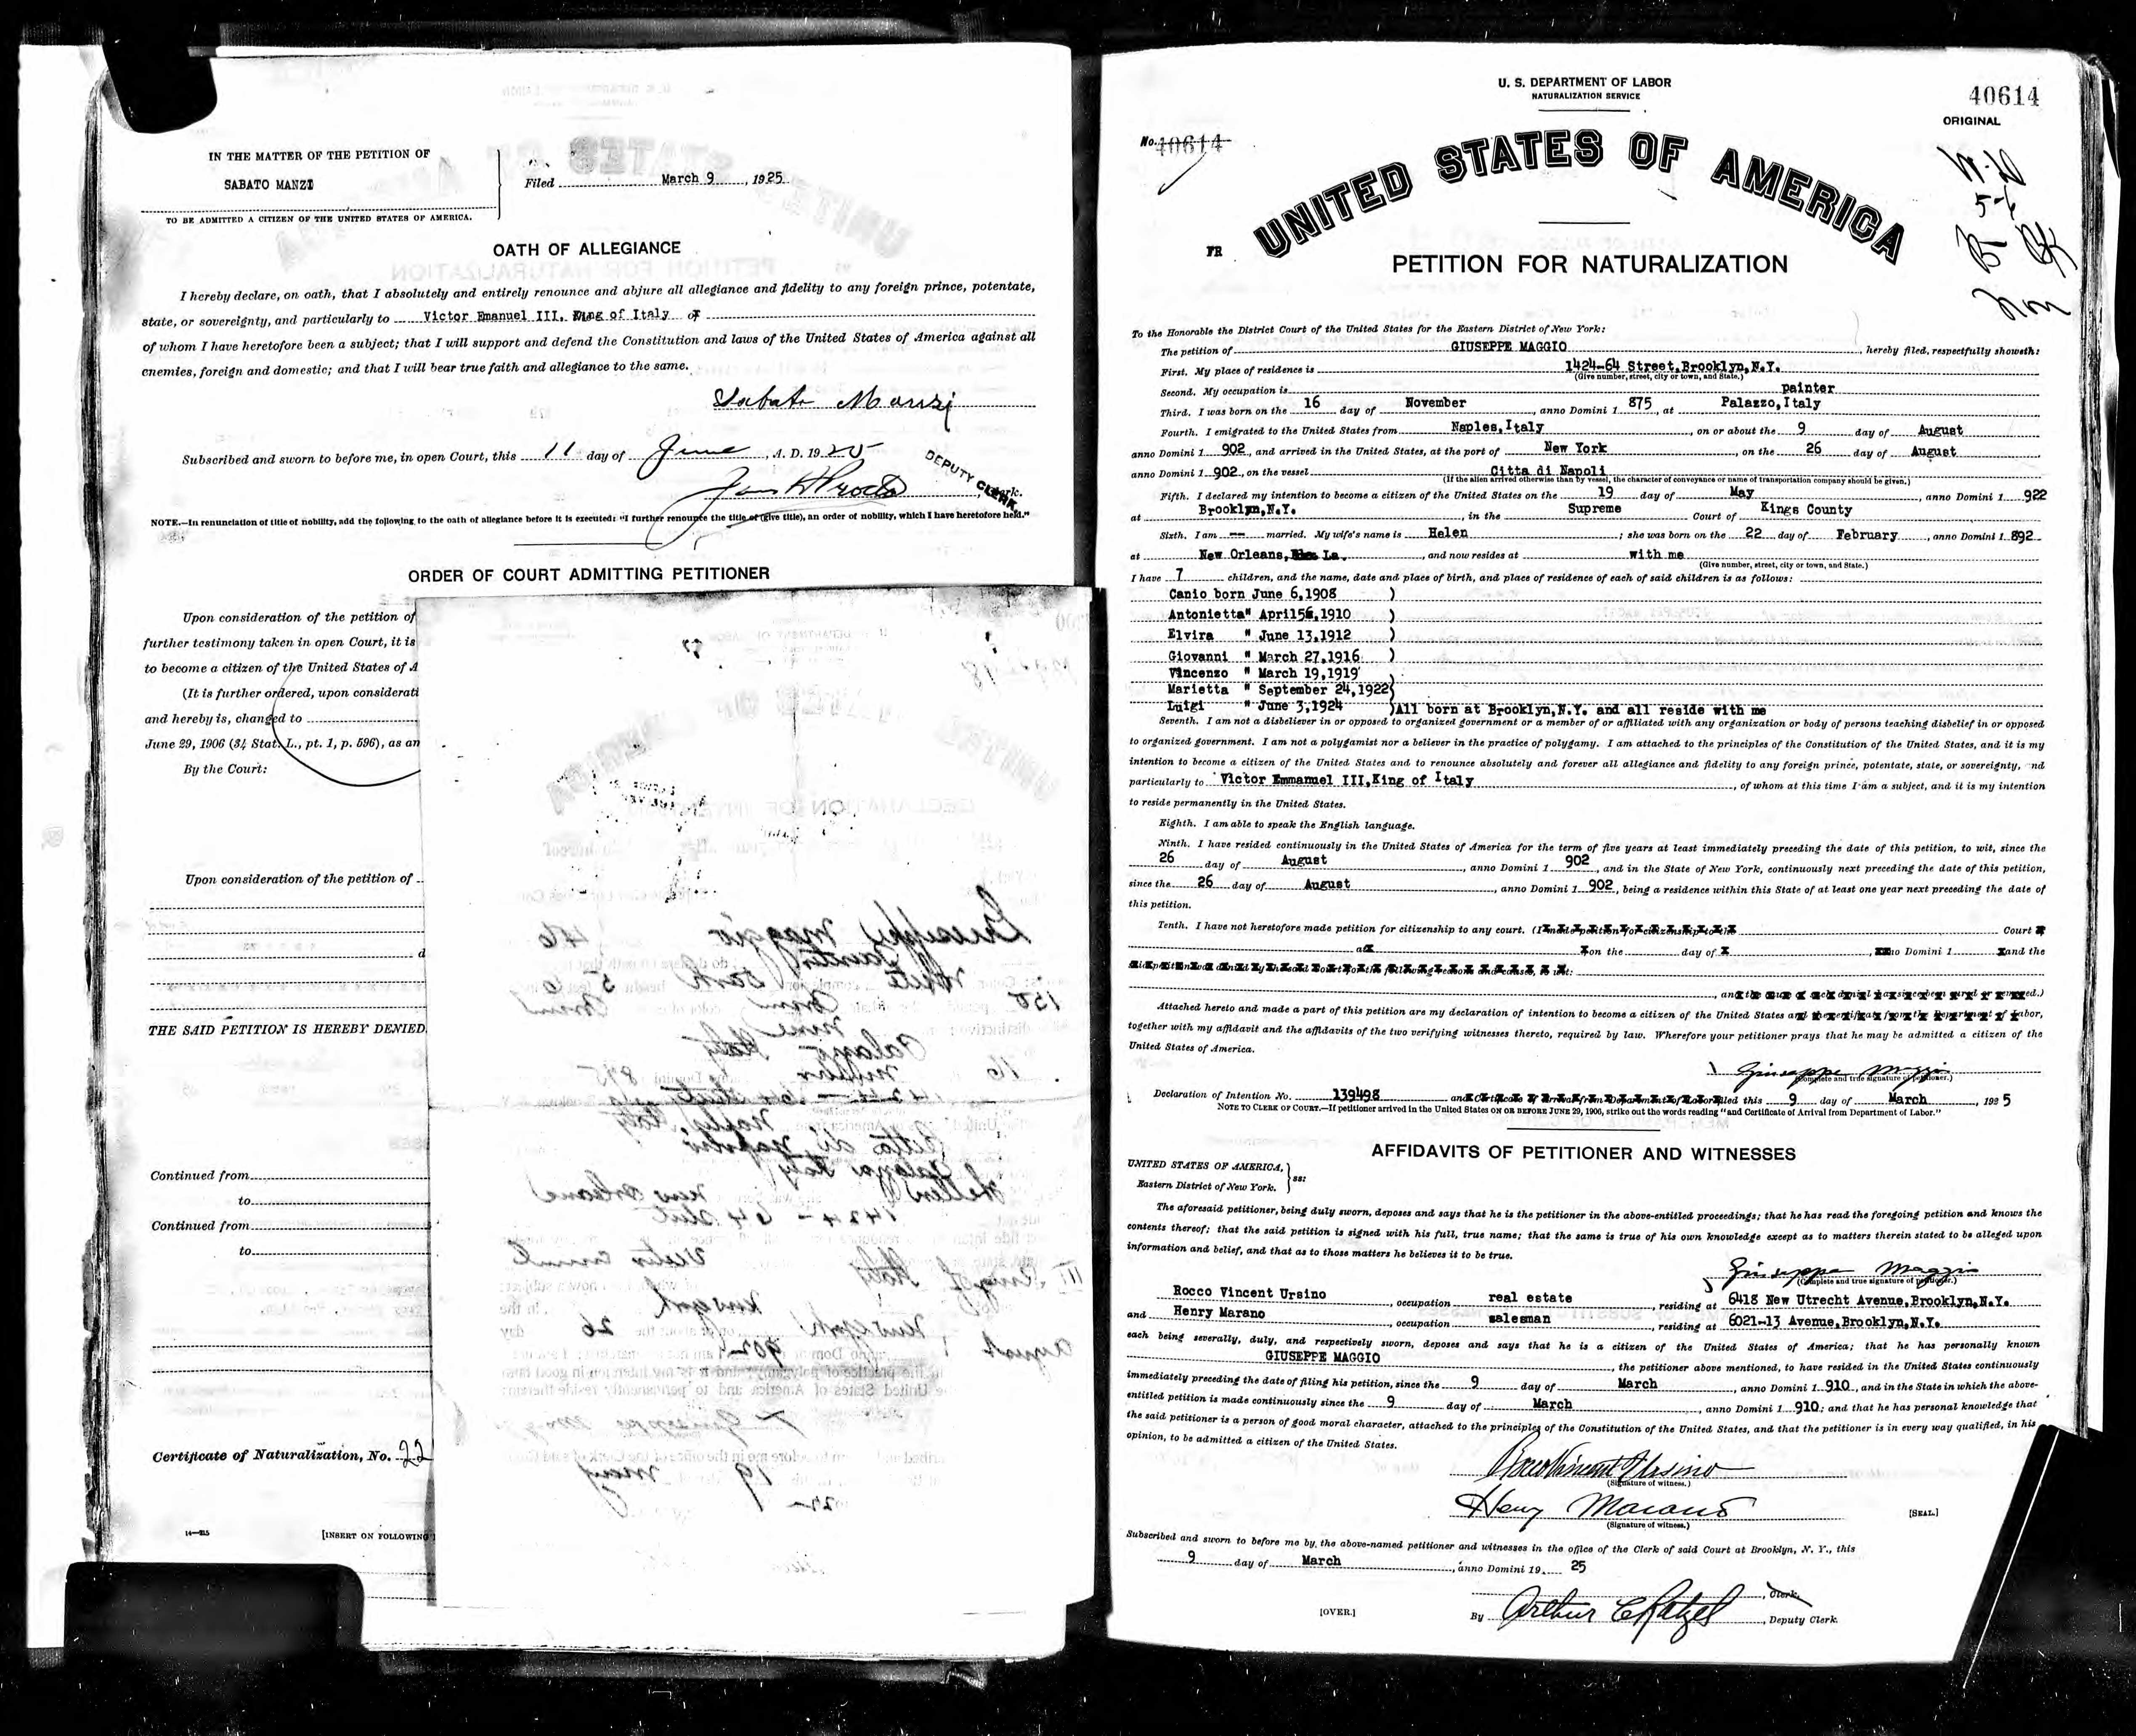 IN THE MATTER OF THE PETITION OF
SABATO MANZI
TO BE ADMITTED A CITIZEN OF THE UNITED STATES OF AMERICA.
Filed March 9, 1925
OATH OF ALLEGIANCE
I hereby declare, on oath, that I absolutely and entirely renounce and abjure all allegiance and fidelity to any foreign prince, potentate,
state, or sovereignty, and particularly to Victor Emanuel III. King of Italy of
of whom I have heretofore been a subject; that I will support and defend the Constitution and laws of the United States of America against all
enemies, foreign and domestic; and that I will bear true faith and allegiance to the same.
Sabato Manzi
Subscribed and sworn to before me, in open Court, this 11 day of June, A. D. 1925
DEPUTY CLERK
, Clerk.
NOTE.—In renunciation of title of nobility, add the following to the oath of allegiance before it is executed: "I further renounce the title of (give title), an order of nobility, which I have heretofore held."
ORDER OF COURT ADMITTING PETITIONER
Upon consideration of the petition of
further testimony taken in open Court, it is
to become a citizen of the United States of A
(It is further ordered, upon considerati
and hereby is, changed to
June 29, 1906 (34 Stat. L., pt. 1, p. 596), as an
By the Court:
Upon consideration of the petition of
d
THE SAID PETITION IS HEREBY DENIED.
Continued from
to
Continued from
to
Certificate of Naturalization, No. 22
14—215
[INSERT ON FOLLOWING
Giuseppe Maggio 46
Painter
White Dark 5 6
150
none
Palazzo Italy
16
1424 - 64 Street
Naples Italy
Citta di Napoli
Palazzo Italy
Hellen New Orleans
1424 - 64 Street
Victor
III King of Italy
New York
New York 26
August 902
Giuseppe
19 May
22
U. S. DEPARTMENT OF LABOR
NATURALIZATION SERVICE
40614
ORIGINAL
No. 40614
UNITED STATES OF AMERICA
FR
PETITION FOR NATURALIZATION
To the Honorable the District Court of the United States for the Eastern District of New York:
The petition of GIUSEPPE MAGGIO, hereby filed, respectfully showeth:
First. My place of residence is 1424-64 Street, Brooklyn, N.Y.
(Give number, street, city or town, and State.)
Second. My occupation is painter
Third. I was born on the 16 day of November, anno Domini 1 875, at Palazzo, Italy
Fourth. I emigrated to the United States from Naples, Italy, on or about the 9 day of August
anno Domini 1 902, and arrived in the United States, at the port of New York, on the 26 day of August
anno Domini 1 902, on the vessel Citta di Napoli
(If the alien arrived otherwise than by vessel, the character of conveyance or name of transportation company should be given.)
Fifth. I declared my intention to become a citizen of the United States on the 19 day of May, anno Domini 1 922
at Brooklyn, N.Y., in the Supreme Court of Kings County
Sixth. I am -- married. My wife's name is Helen; she was born on the 22 day of February, anno Domini 1 892
at New Orleans, La., and now resides at with me
(Give number, street, city or town, and State.)
I have 7 children, and the name, date and place of birth, and place of residence of each of said children is as follows:
Canio born June 6, 1908 )
Antonietta " April 15, 1910 )
Elvira " June 13, 1912 )
Giovanni " March 27, 1916 )
Vincenzo " March 19, 1919
Marietta " September 24, 1922)
Luigi " June 3, 1924 )All born at Brooklyn, N.Y. and all reside with me
Seventh. I am not a disbeliever in or opposed to organized government or a member of or affiliated with any organization or body of persons teaching disbelief in or opposed
to organized government. I am not a polygamist nor a believer in the practice of polygamy. I am attached to the principles of the Constitution of the United States, and it is my
intention to become a citizen of the United States and to renounce absolutely and forever all allegiance and fidelity to any foreign prince, potentate, state, or sovereignty, and
particularly to Victor Emmanuel III, King of Italy, of whom at this time I am a subject, and it is my intention
to reside permanently in the United States.
Eighth. I am able to speak the English language.
Ninth. I have resided continuously in the United States of America for the term of five years at least immediately preceding the date of this petition, to wit, since the
26 day of August, anno Domini 1 902, and in the State of New York, continuously next preceding the date of this petition,
since the 26 day of August, anno Domini 1 902, being a residence within this State of at least one year next preceding the date of
this petition.
Tenth. I have not heretofore made petition for citizenship to any court. (I made petition for citizenship to the Court
at on the day of anno Domini 1 and the
said petition was denied by the said Court for the following reasons and causes, to wit:
, and the cause of such denial has since been cured or removed.)
Attached hereto and made a part of this petition are my declaration of intention to become a citizen of the United States and the certificate from the Department of Labor,
together with my affidavit and the affidavits of the two verifying witnesses thereto, required by law. Wherefore your petitioner prays that he may be admitted a citizen of the
United States of America.
Giuseppe Maggio
(Complete and true signature of petitioner.)
Declaration of Intention No. 139498 and Certificate of Arrival from Department of Labor filed this 9 day of March, 1925
NOTE TO CLERK OF COURT.—If petitioner arrived in the United States ON OR BEFORE JUNE 29, 1906, strike out the words reading "and Certificate of Arrival from Department of Labor."
AFFIDAVITS OF PETITIONER AND WITNESSES
UNITED STATES OF AMERICA,
Eastern District of New York. ss:
The aforesaid petitioner, being duly sworn, deposes and says that he is the petitioner in the above-entitled proceedings; that he has read the foregoing petition and knows the
contents thereof; that the said petition is signed with his full, true name; that the same is true of his own knowledge except as to matters therein stated to be alleged upon
information and belief, and that as to those matters he believes it to be true.
Giuseppe Maggio
(Complete and true signature of petitioner.)
Rocco Vincent Ursino, occupation real estate, residing at 6418 New Utrecht Avenue, Brooklyn, N.Y.
and Henry Marano, occupation salesman, residing at 6021-13 Avenue, Brooklyn, N.Y.
each being severally, duly, and respectively sworn, deposes and says that he is a citizen of the United States of America; that he has personally known
GIUSEPPE MAGGIO, the petitioner above mentioned, to have resided in the United States continuously
immediately preceding the date of filing his petition, since the 9 day of March, anno Domini 1 910, and in the State in which the above-
entitled petition is made continuously since the 9 day of March, anno Domini 1 910; and that he has personal knowledge that
the said petitioner is a person of good moral character, attached to the principles of the Constitution of the United States, and that the petitioner is in every way qualified, in his
opinion, to be admitted a citizen of the United States.
Rocco Vincent Ursino
(Signature of witness.)
Henry Marano
(Signature of witness.)
[SEAL.]
Subscribed and sworn to before me by the above-named petitioner and witnesses in the office of the Clerk of said Court at Brooklyn, N. Y., this
9 day of March, anno Domini 19 25
, Clerk.
[OVER.]
By Arthur C Ratzel, Deputy Clerk.